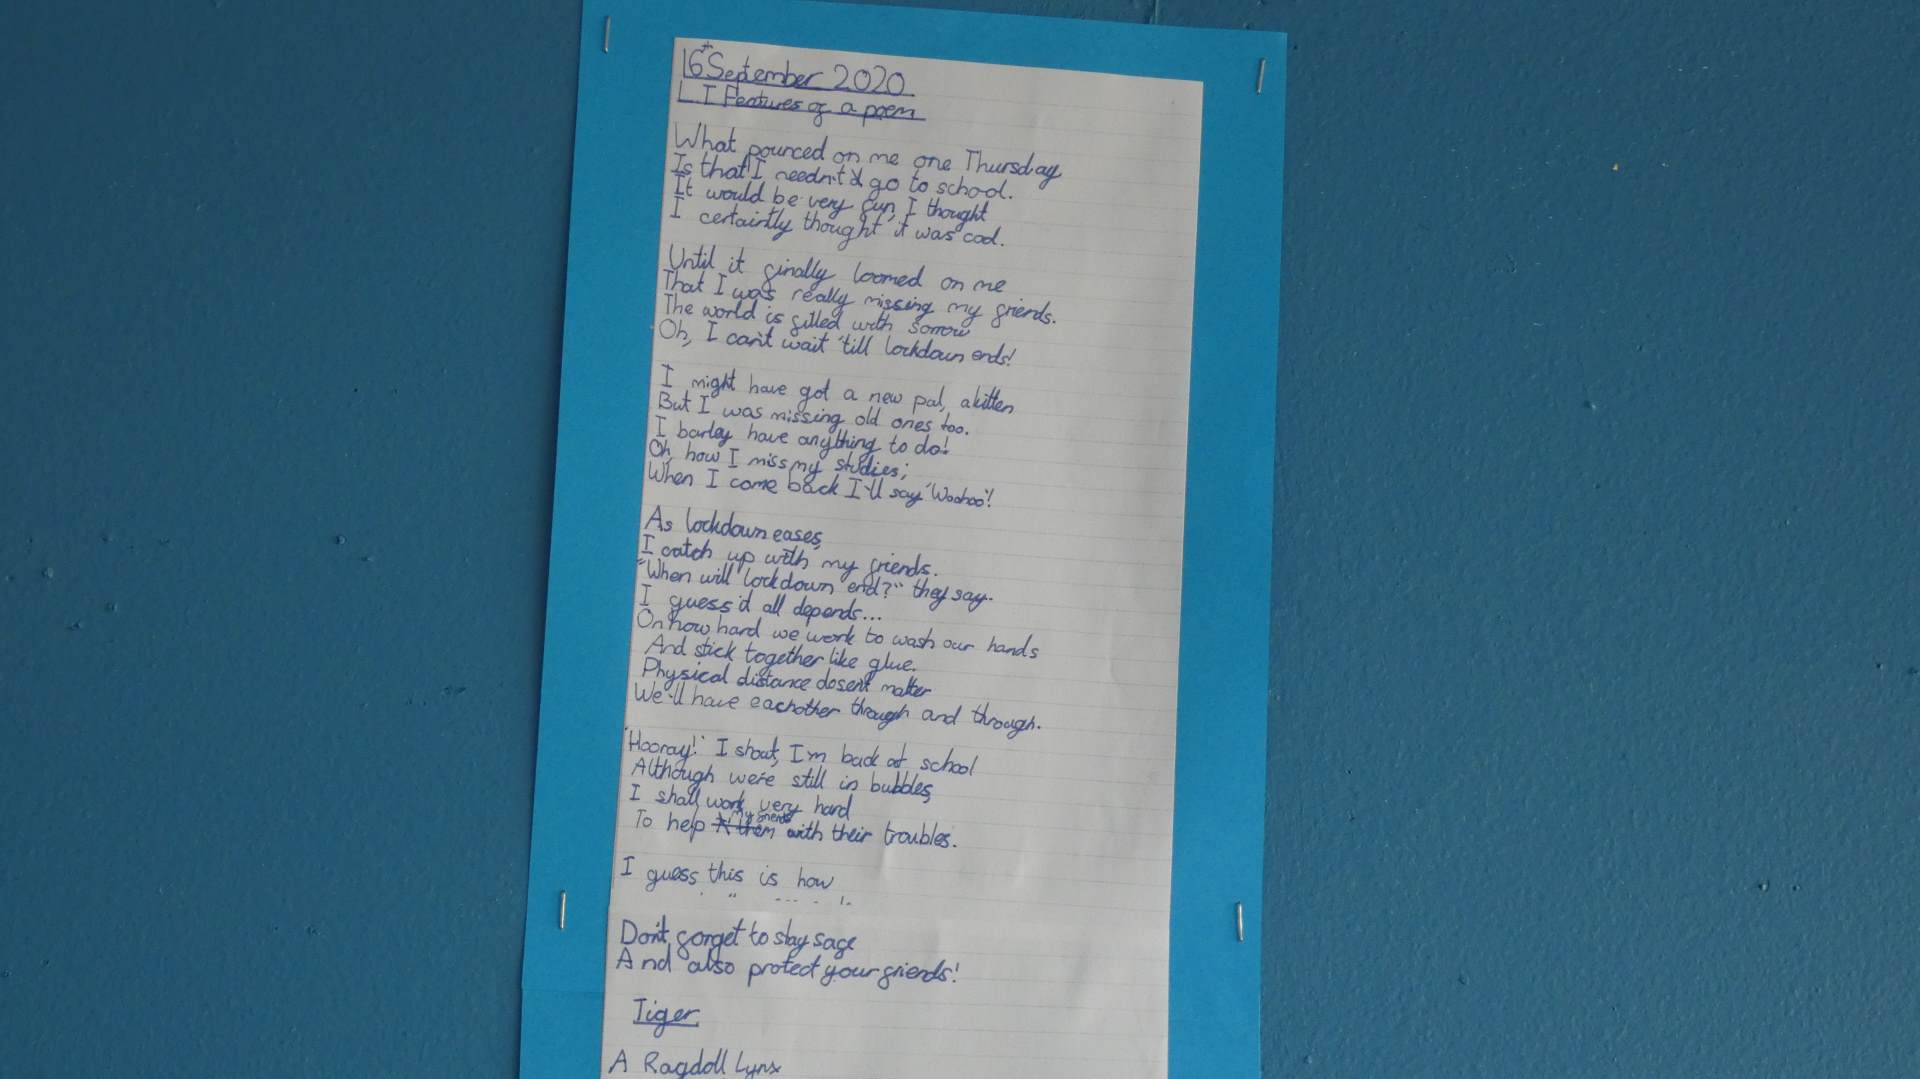 16th September 2020
L.I Features of a poem
What pounced on me one Thursday
Is that I needn't go to school.
It would be very fun, I thought
I certaintly thought it was cool.
Until it finally loomed on me
That I was really missing my friends.
The world is filled with sorrow
Oh, I can't wait 'till lockdown ends!
I might have got a new pal, a kitten
But I was missing old ones too.
I barley have anything to do!
Oh, how I miss my studies;
When I come back I'll say 'Woohoo'!
As lockdown eases,
I catch up with my friends.
"When will lockdown end?" they say.
I guess'd all depends...
On how hard we work to wash our hands
And stick together like glue.
Physical distance dosen't matter
We'll have eachother through and through.
'Hooray!' I shout, I'm back at school
Although we're still in bubbles,
I shall work very hard
To help my friends with their troubles.
I guess this is how
Don't forget to stay safe
And also protect your friends!
Tiger
A Ragdoll Lynx